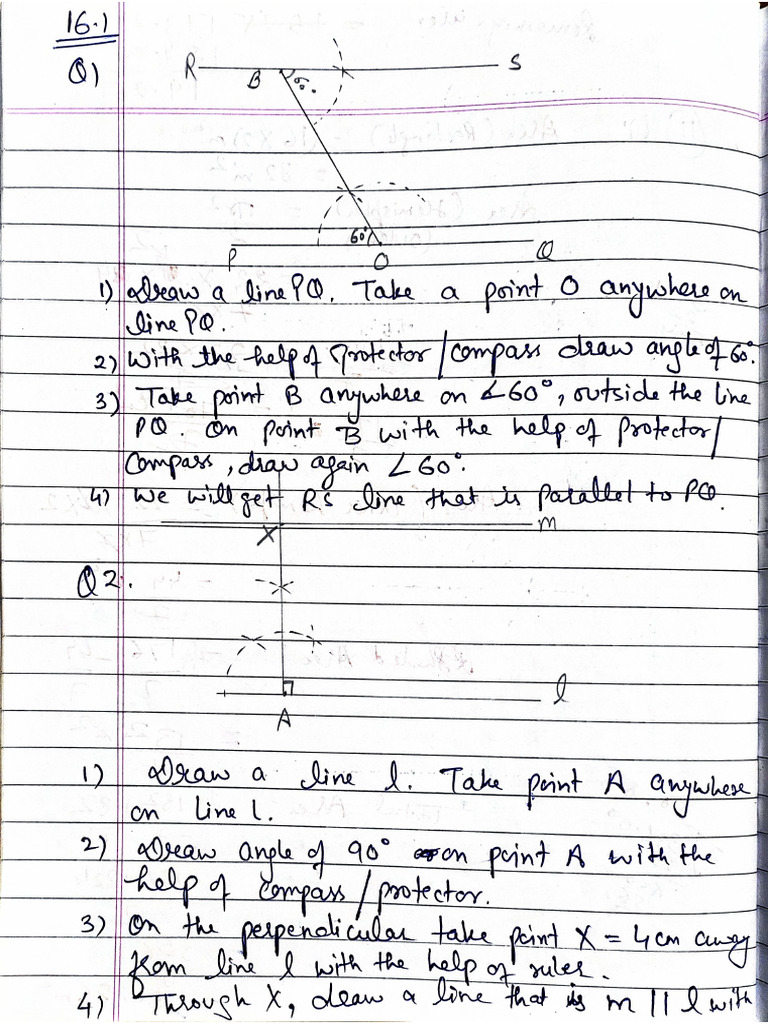 16.1
Q)
R B 60° S
60°
P O Q
1) Draw a line PQ. Take a point O anywhere on
line PQ.
2) With the help of Protector/compass draw angle of 60°.
3) Take point B anywhere on ∠60°, outside the line
PQ. On point B with the help of protector/
compass, draw again ∠60°.
4) We will get RS line that is parallel to PQ.
X m
Q2.
l
A
1) Draw a line l. Take point A anywhere
on line l.
2) Draw angle of 90° on point A with the
help of compass/protector.
3) On the perpendicular take point X = 4cm away
from line l with the help of ruler.
4) Through X, draw a line that is m || l with